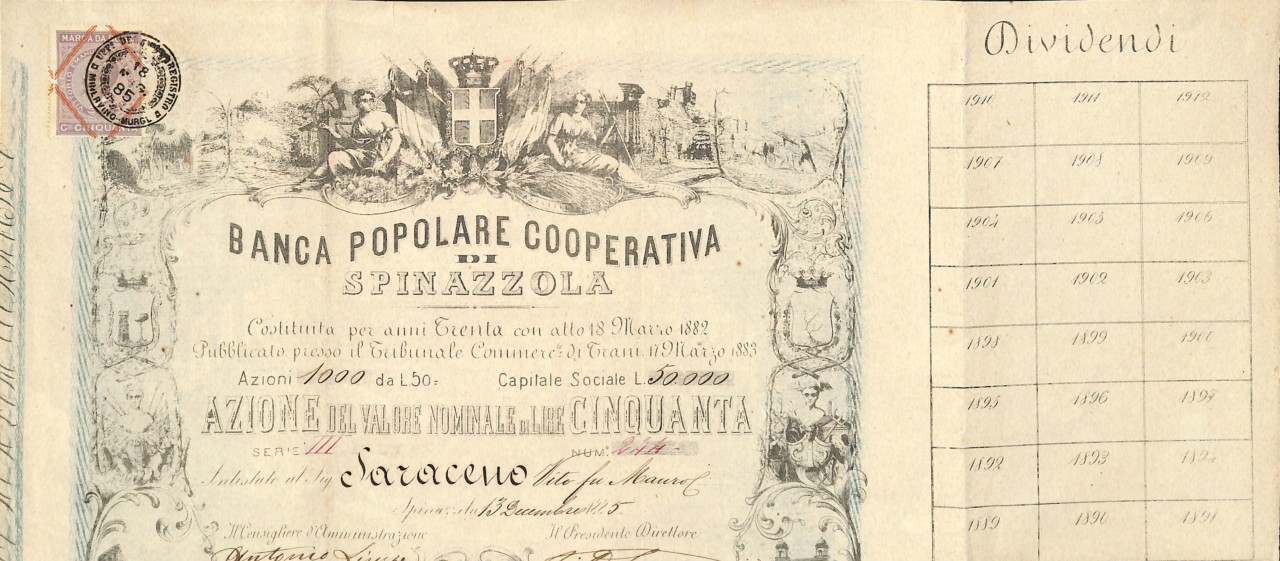 MARCA DA
UFF. DEL REGISTRO
MINERVINO-MURGE
18
85
C. CINQUANTA
BANCA POPOLARE COOPERATIVA
DI
SPINAZZOLA
Costituita per anni Trenta con atto 18 Marzo 1882
Pubblicato presso il Tribunale Commerc.le di Trani 17 Marzo 1883
Azioni 1000 da L 50= Capitale Sociale L. 50.000
AZIONE DEL VALORE NOMINALE DI LIRE CINQUANTA
SERIE III NUM.
Intestate al Sig Saraceno Vito fu Mauro
13 Decembre 1885
Il Consigliere d'Amministrazione Il Presidente Direttore
Antonio
Dividendi
1910 1911 1912
1907 1908 1909
1904 1905 1906
1901 1902 1903
1898 1899 1900
1895 1896 1897
1892 1893 1894
1889 1890 1891